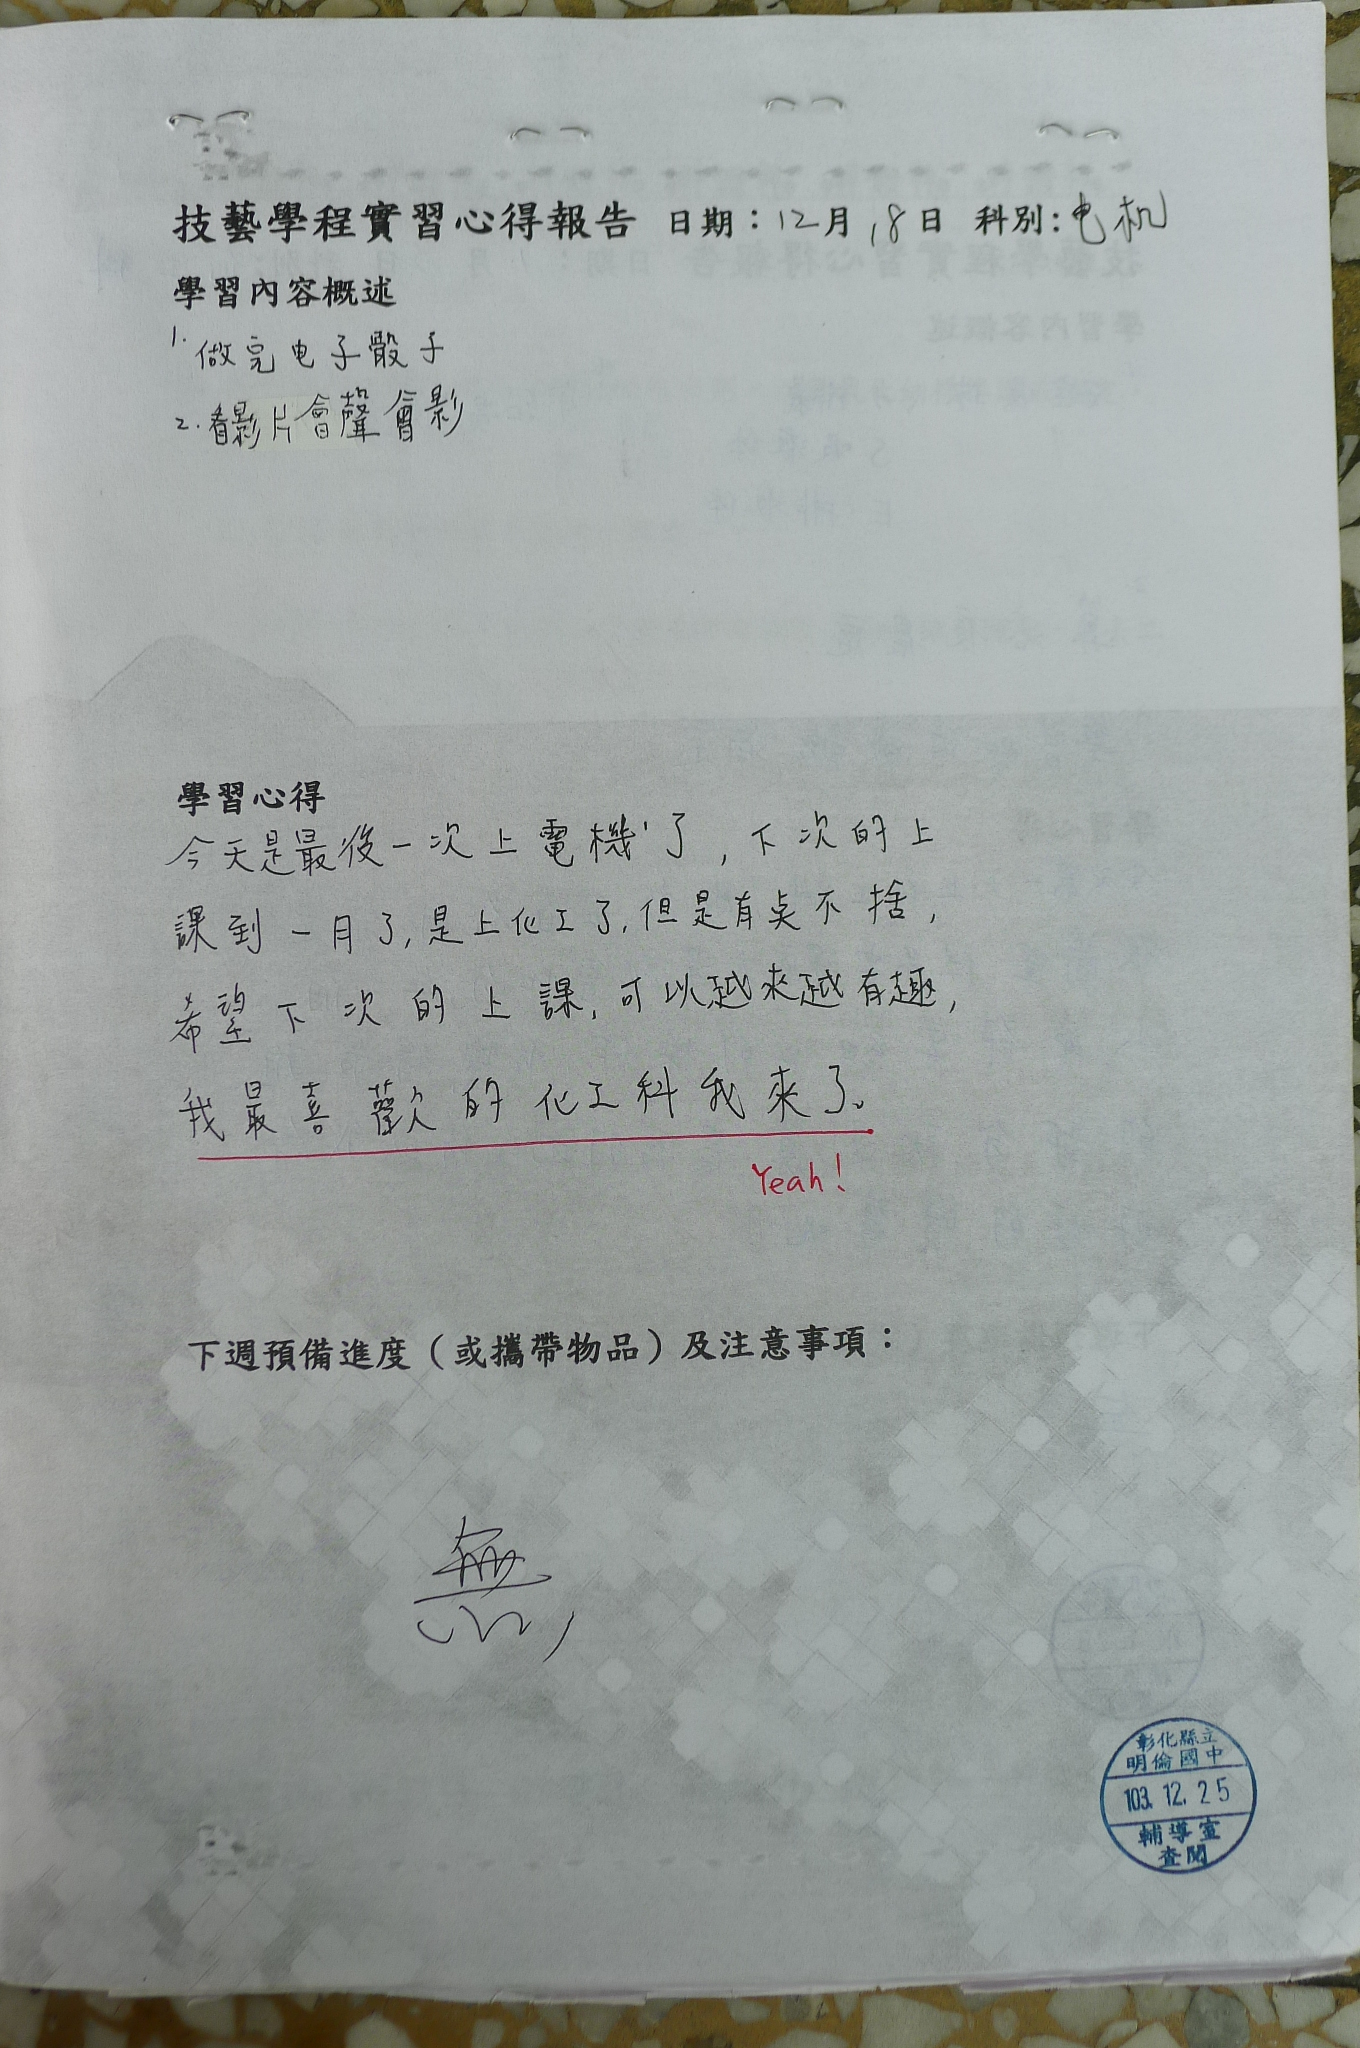 技藝學程實習心得報告 日期：12月18日 科別：电机
學習內容概述
1. 做完电子骰子
2. 看影片會聲會影
學習心得
今天是最後一次上電機了，下次的上
課到一月了，是上化工了，但是有桌不捨，
希望下次的上課，可以越來越有趣，
我最喜歡的化工科我來了。
Yeah!
下週預備進度（或攜帶物品）及注意事項：
無
彰化縣立
明倫國中
103.12.25
輔導室
查閱